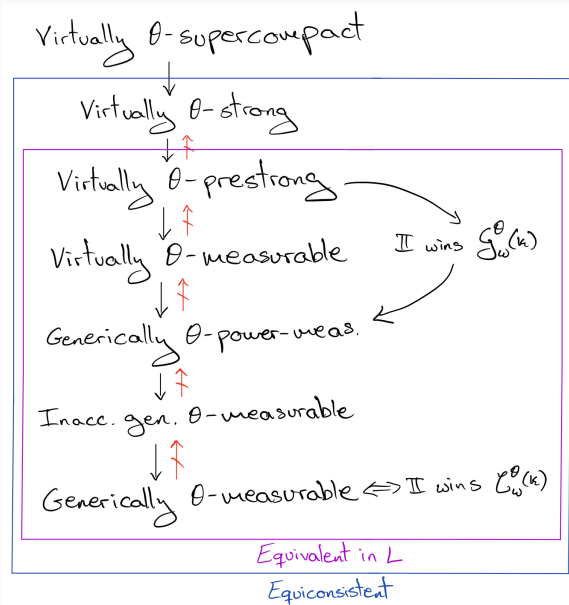 Virtually θ-supercompact
Virtually θ-strong
Virtually θ-prestrong
II wins 𝒢_ω^θ(κ)
Virtually θ-measurable
Generically θ-power-meas.
Inacc. gen. θ-measurable
Generically θ-measurable ⟺ II wins 𝒞_ω^θ(κ)
Equivalent in L
Equiconsistent